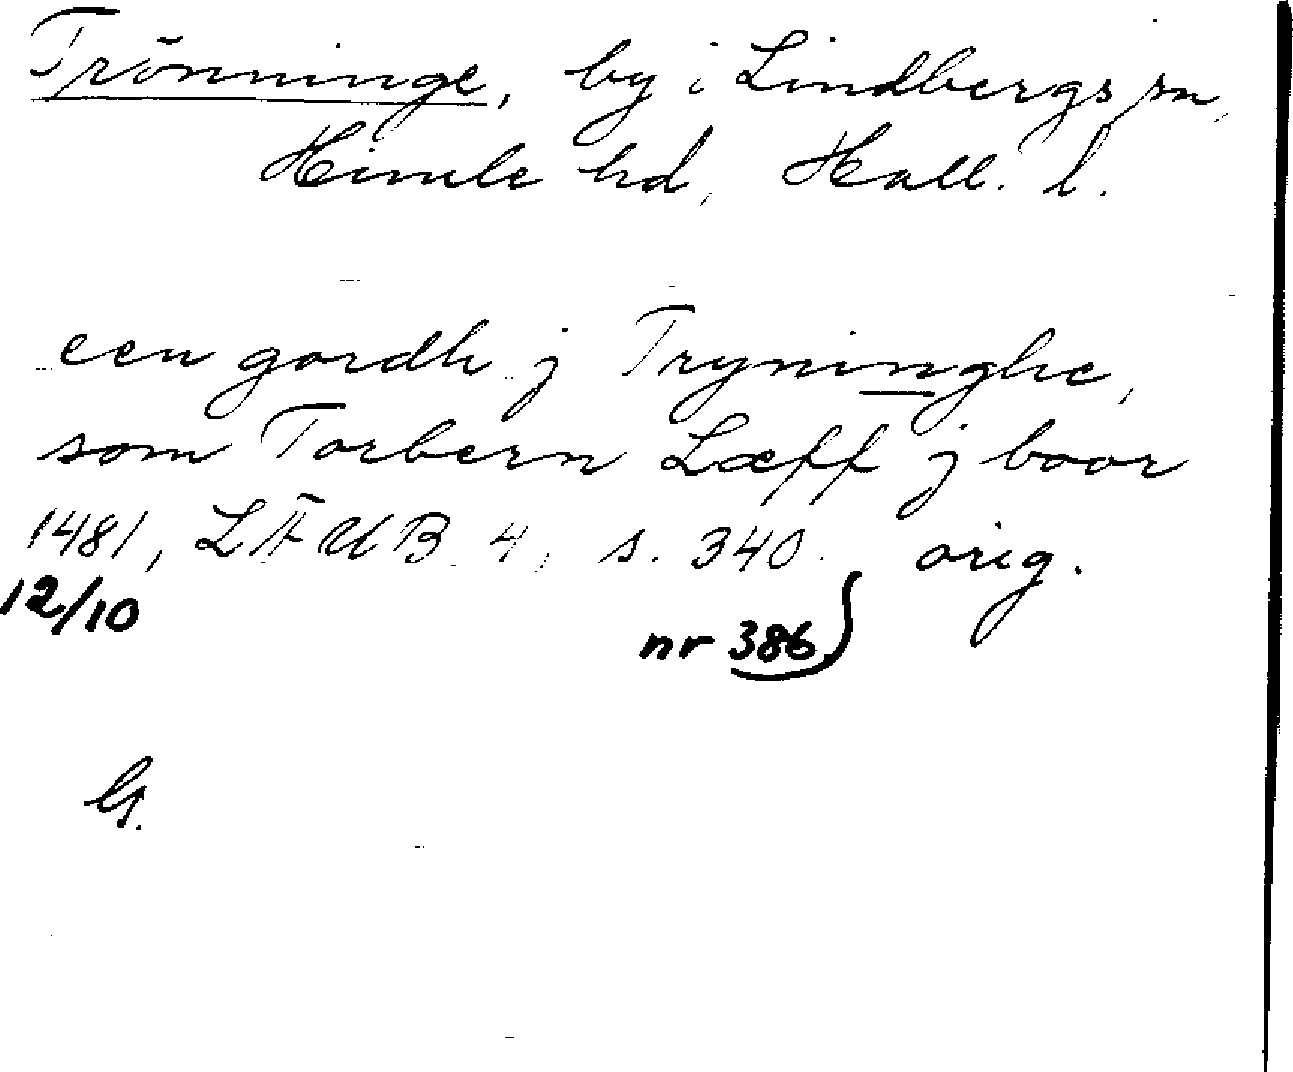 Trönninge, by i Lindbergs sn,
Himle hd, Hall. l.
een gordh j Tryninghe,
som Torbern Læff j boor
1481, LÄUB 4, s. 340. orig.
12/10 nr 386